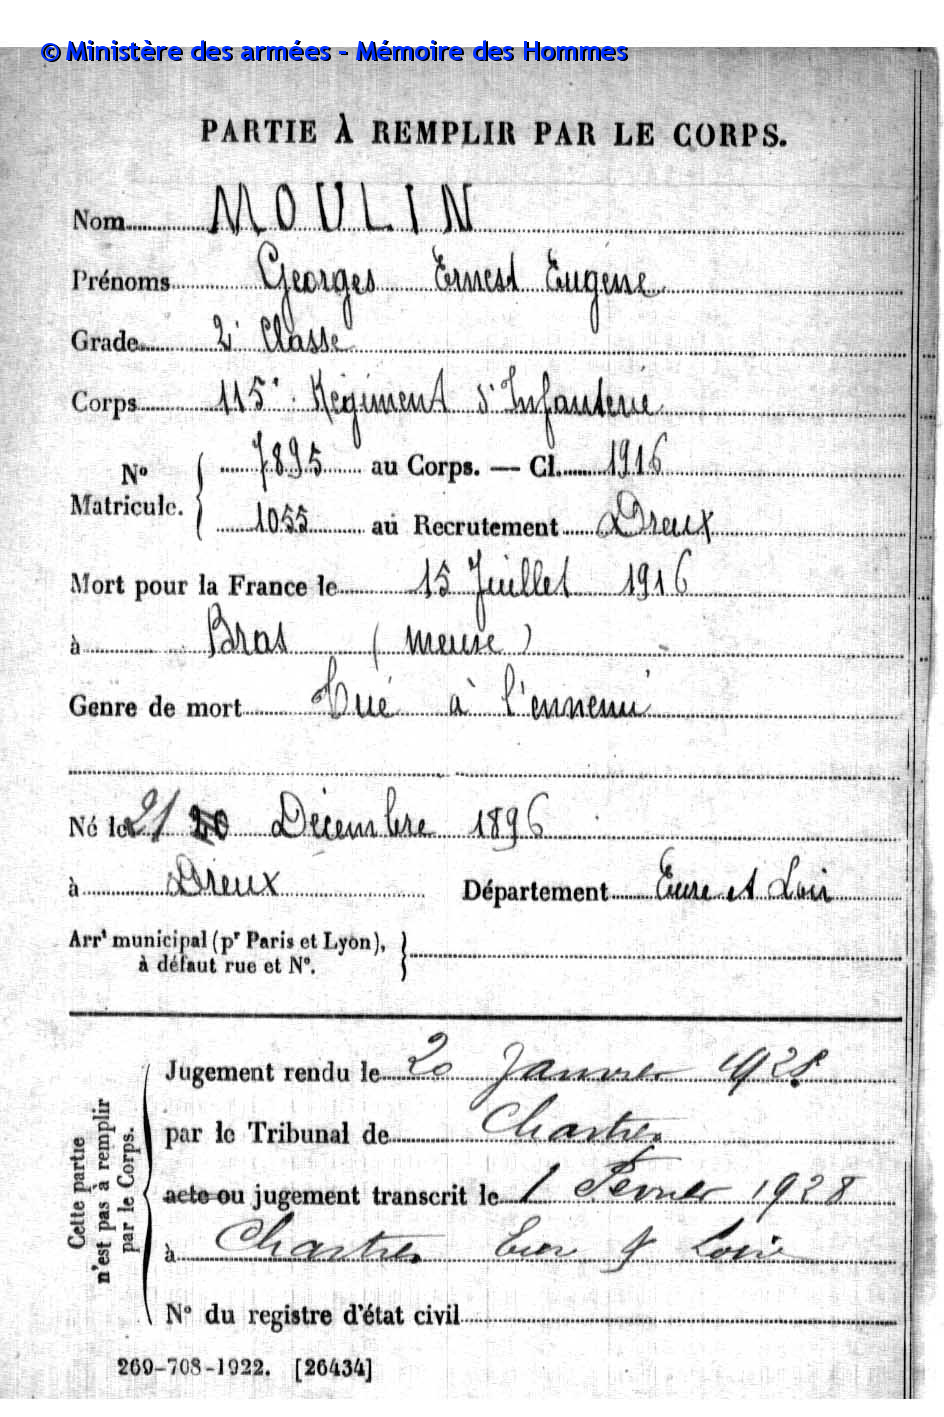 © Ministère des armées - Mémoire des Hommes
PARTIE À REMPLIR PAR LE CORPS.
Nom MOULIN
Prénoms Georges Ernest Eugène
Grade 2e Classe
Corps 115e Régiment d'Infanterie
No Matricule. { 7895 au Corps. — Cl. 1916
1055 au Recrutement Dreux
Mort pour la France le 15 Juillet 1916
à Bras (Meuse)
Genre de mort Tué à l'ennemi
Né le 21 20 Décembre 1896
à Dreux Département Eure et Loir
Arrt municipal (pr Paris et Lyon), }
à défaut rue et N°.
Cette partie n'est pas à remplir par le Corps.
Jugement rendu le 20 Janvier 1928
par le Tribunal de Chartres
acte ou jugement transcrit le 1 Février 1928
à Chartres Eure & Loir
N° du registre d'état civil
269-708-1922. [26434]